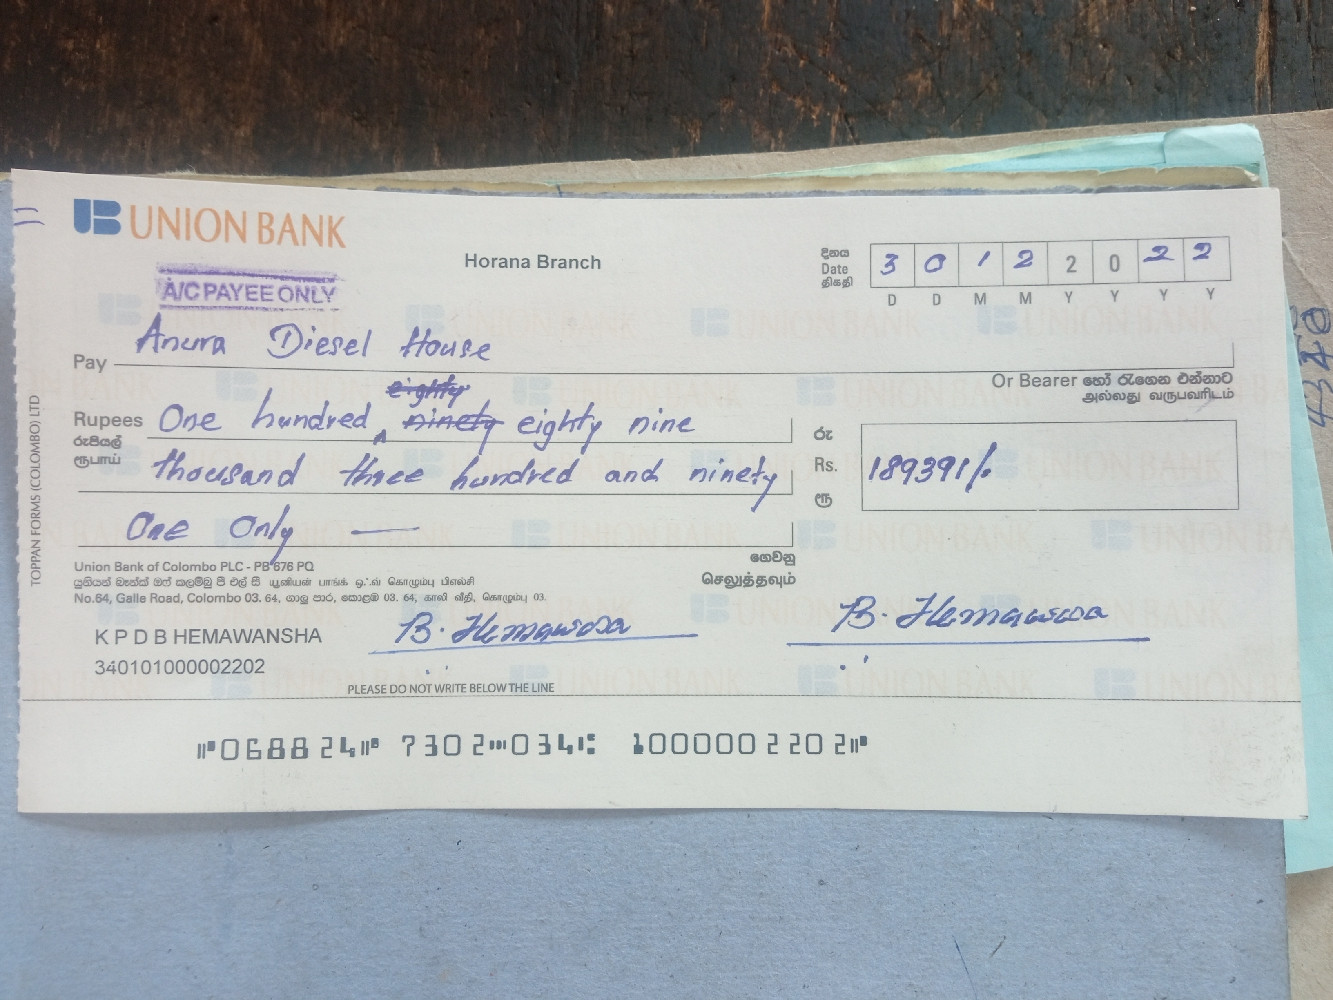 UNION BANK
Horana Branch
දිනය
Date
திகதி
3 0 1 2 2 0 2 2
D D M M Y Y Y Y
A/C PAYEE ONLY
Pay Anura Diesel House
Or Bearer හෝ රැගෙන එන්නාට
அல்லது வருபவரிடம்
eighty
Rupees One hundred ninety eighty nine
රුපියල්
ரூபாய்
thousand three hundred and ninety
One Only —
රු
Rs. 189391/.
ரூ
ගෙවනු
செலுத்தவும்
TOPPAN FORMS (COLOMBO) LTD
Union Bank of Colombo PLC - PB 676 PQ
යූනියන් බෑන්ක් ඔෆ් කලම්බු පී එල් සී யூனியன் பாங்க் ஒஃவ் கொழும்பு பிஎல்சி
No.64, Galle Road, Colombo 03. 64, ගාලු පාර, කොළඹ 03. 64, காலி வீதி, கொழும்பு 03.
K P D B HEMAWANSHA
340101000002202
B. Hemawasa
B. Hemawasa
PLEASE DO NOT WRITE BELOW THE LINE
⑈068824⑈ 7302⑉034⑆ 1000002202⑈